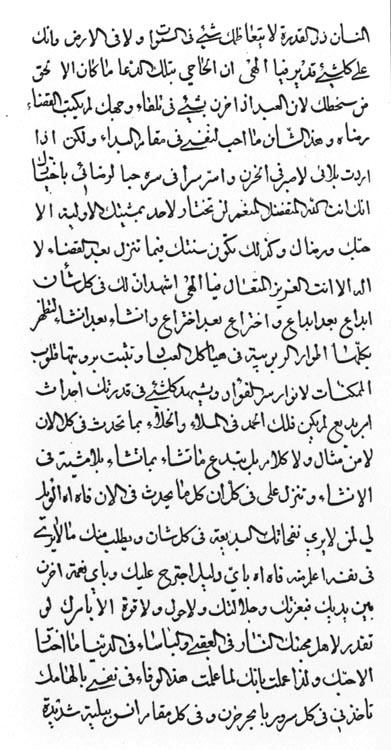 الشان ذي القدرة لا يتعاظمك شيئ في السموا ولا في الارض وانك
على كلشيئ قدير فيا الهى ان الحاحي بتلك الدعا ما كان الا لخوفي
من سخطك لان العبد اذا حزن بشيئ في تلقاء وجهك لم يكتب القضاء
رضاه وهذا الشان ما احب لنفسي في مقام البداء ولكن اذا
اردت بلائي لاصبر في الحزن واستر سرا في سره حبا لرضائي باختيارك
انك انت كنت المتفضل المنعم لن تختار لاحد بمشيتك الاولية الا
حبك ورضاك وكذلك تكون سنتك فيما تنزل بعد القضاء لا
اله الا انت العزيز المتعال فيا الهى اشهد ان لك في كل شان
ابداع بعد ابداع واختراع بعد اختراع وانشاء بعد انشاء لتظهر
بكلها انوار الربوبية في هياكل العباد وتثبت برويتها قلوب
الممكنات لانوار سر الفؤاد ويشهد كلشيئ في قدرتك احداث
امر بديع لم يكن فلك الحمد في الملاء والخلاء بما تحدث في كل الان
لا من مثال ولا كلام بل تبدع ما تشاء بما تشاء بلا شبه في
الانشاء وتنزل على في كل ان كل ما يحدث في الان فاه اه الويل
لي لمن لا يري نفحاتك البديعة في كل شان ويطلب منك ما لا يرى
في نفسه اعلى منه فاه اه باى دليل احتج عليك وباى نعمة احزن
بين يديك فبعزتك وجلالتك ولا حول ولا قوة الا بامرك لو
تقدر لاهل محبتك النار في العقبي والباساء في الدنيا ما اختار
الا حبك ولذا عملت بانك لما علمت هذا الوفاء في نفسي بالهامك
تاخذني في كل سرور بابحر حزن وفي كل مقام انس ببلية شديدة